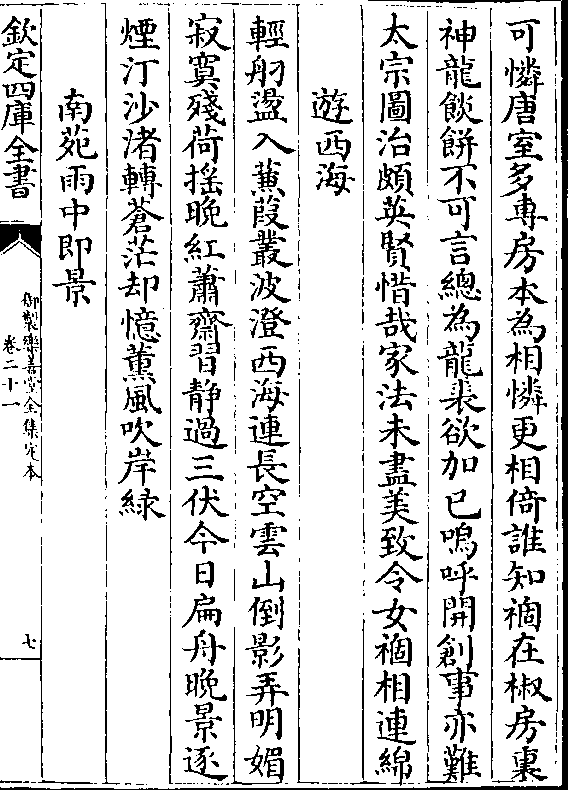 可憐唐室多專房本為相憐更相倚誰知禍在椒房裏
神龍餤餅不可言總為龍漦欲加已嗚呼開創事亦難
太宗圖治頗英賢惜哉家法未盡美致令女禍相連綿
遊西海
輕舠盪入蒹葭叢波澄西海連長空雲山倒影弄明媚
寂寞殘荷揺晚紅蕭齋習静過三伏今日扁舟晚景逐
煙汀沙渚轉蒼茫却憶薰風吹岸緑
南苑雨中即景
欽定四庫全書
御製樂善堂全集定本
卷二十一
七